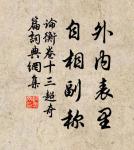 外内表里
自相副称
論衡卷十三超奇
篇詞典網集